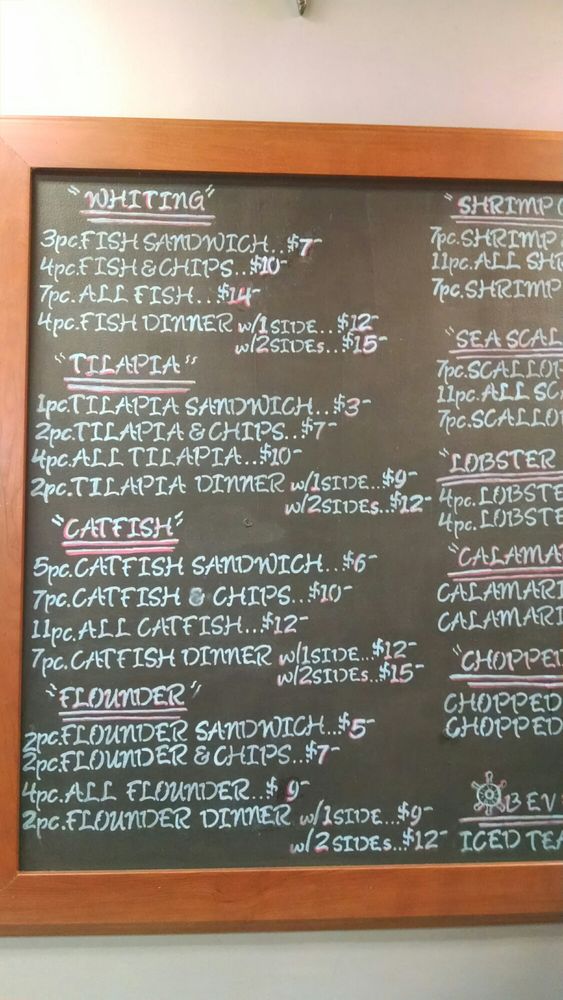 "WHITING"
3pc.FISH SANDWICH...$7-
4pc.FISH & CHIPS...$10-
7pc.ALL FISH...$14-
4pc.FISH DINNER w/1SIDE...$12-
w/2SIDEs...$15-
"TILAPIA"
1pc.TILAPIA SANDWICH...$3-
2pc.TILAPIA & CHIPS...$7-
4pc.ALL TILAPIA...$10-
2pc.TILAPIA DINNER w/1SIDE...$9-
w/2SIDEs...$12-
"CATFISH"
5pc.CATFISH SANDWICH...$6-
7pc.CATFISH & CHIPS...$10-
11pc.ALL CATFISH...$12-
7pc.CATFISH DINNER w/1SIDE...$12-
w/2SIDEs...$15-
"FLOUNDER"
2pc.FLOUNDER SANDWICH...$5-
2pc.FLOUNDER & CHIPS...$7-
4pc.ALL FLOUNDER...$ 9-
2pc.FLOUNDER DINNER w/1SIDE...$9-
w/2 SIDEs...$12-
"SHRIMP
7pc.SHRIMP
11pc.ALL SHR
7pc.SHRIMP
"SEA SCAL
7pc.SCALLOP
11pc.ALL SC
7pc.SCALLO
"LOBSTER
4pc.LOBSTE
4pc.LOBSTE
"CALAMA
CALAMARI
CALAMARI
"CHOPPED
CHOPPED
CHOPPED
ICED TEA